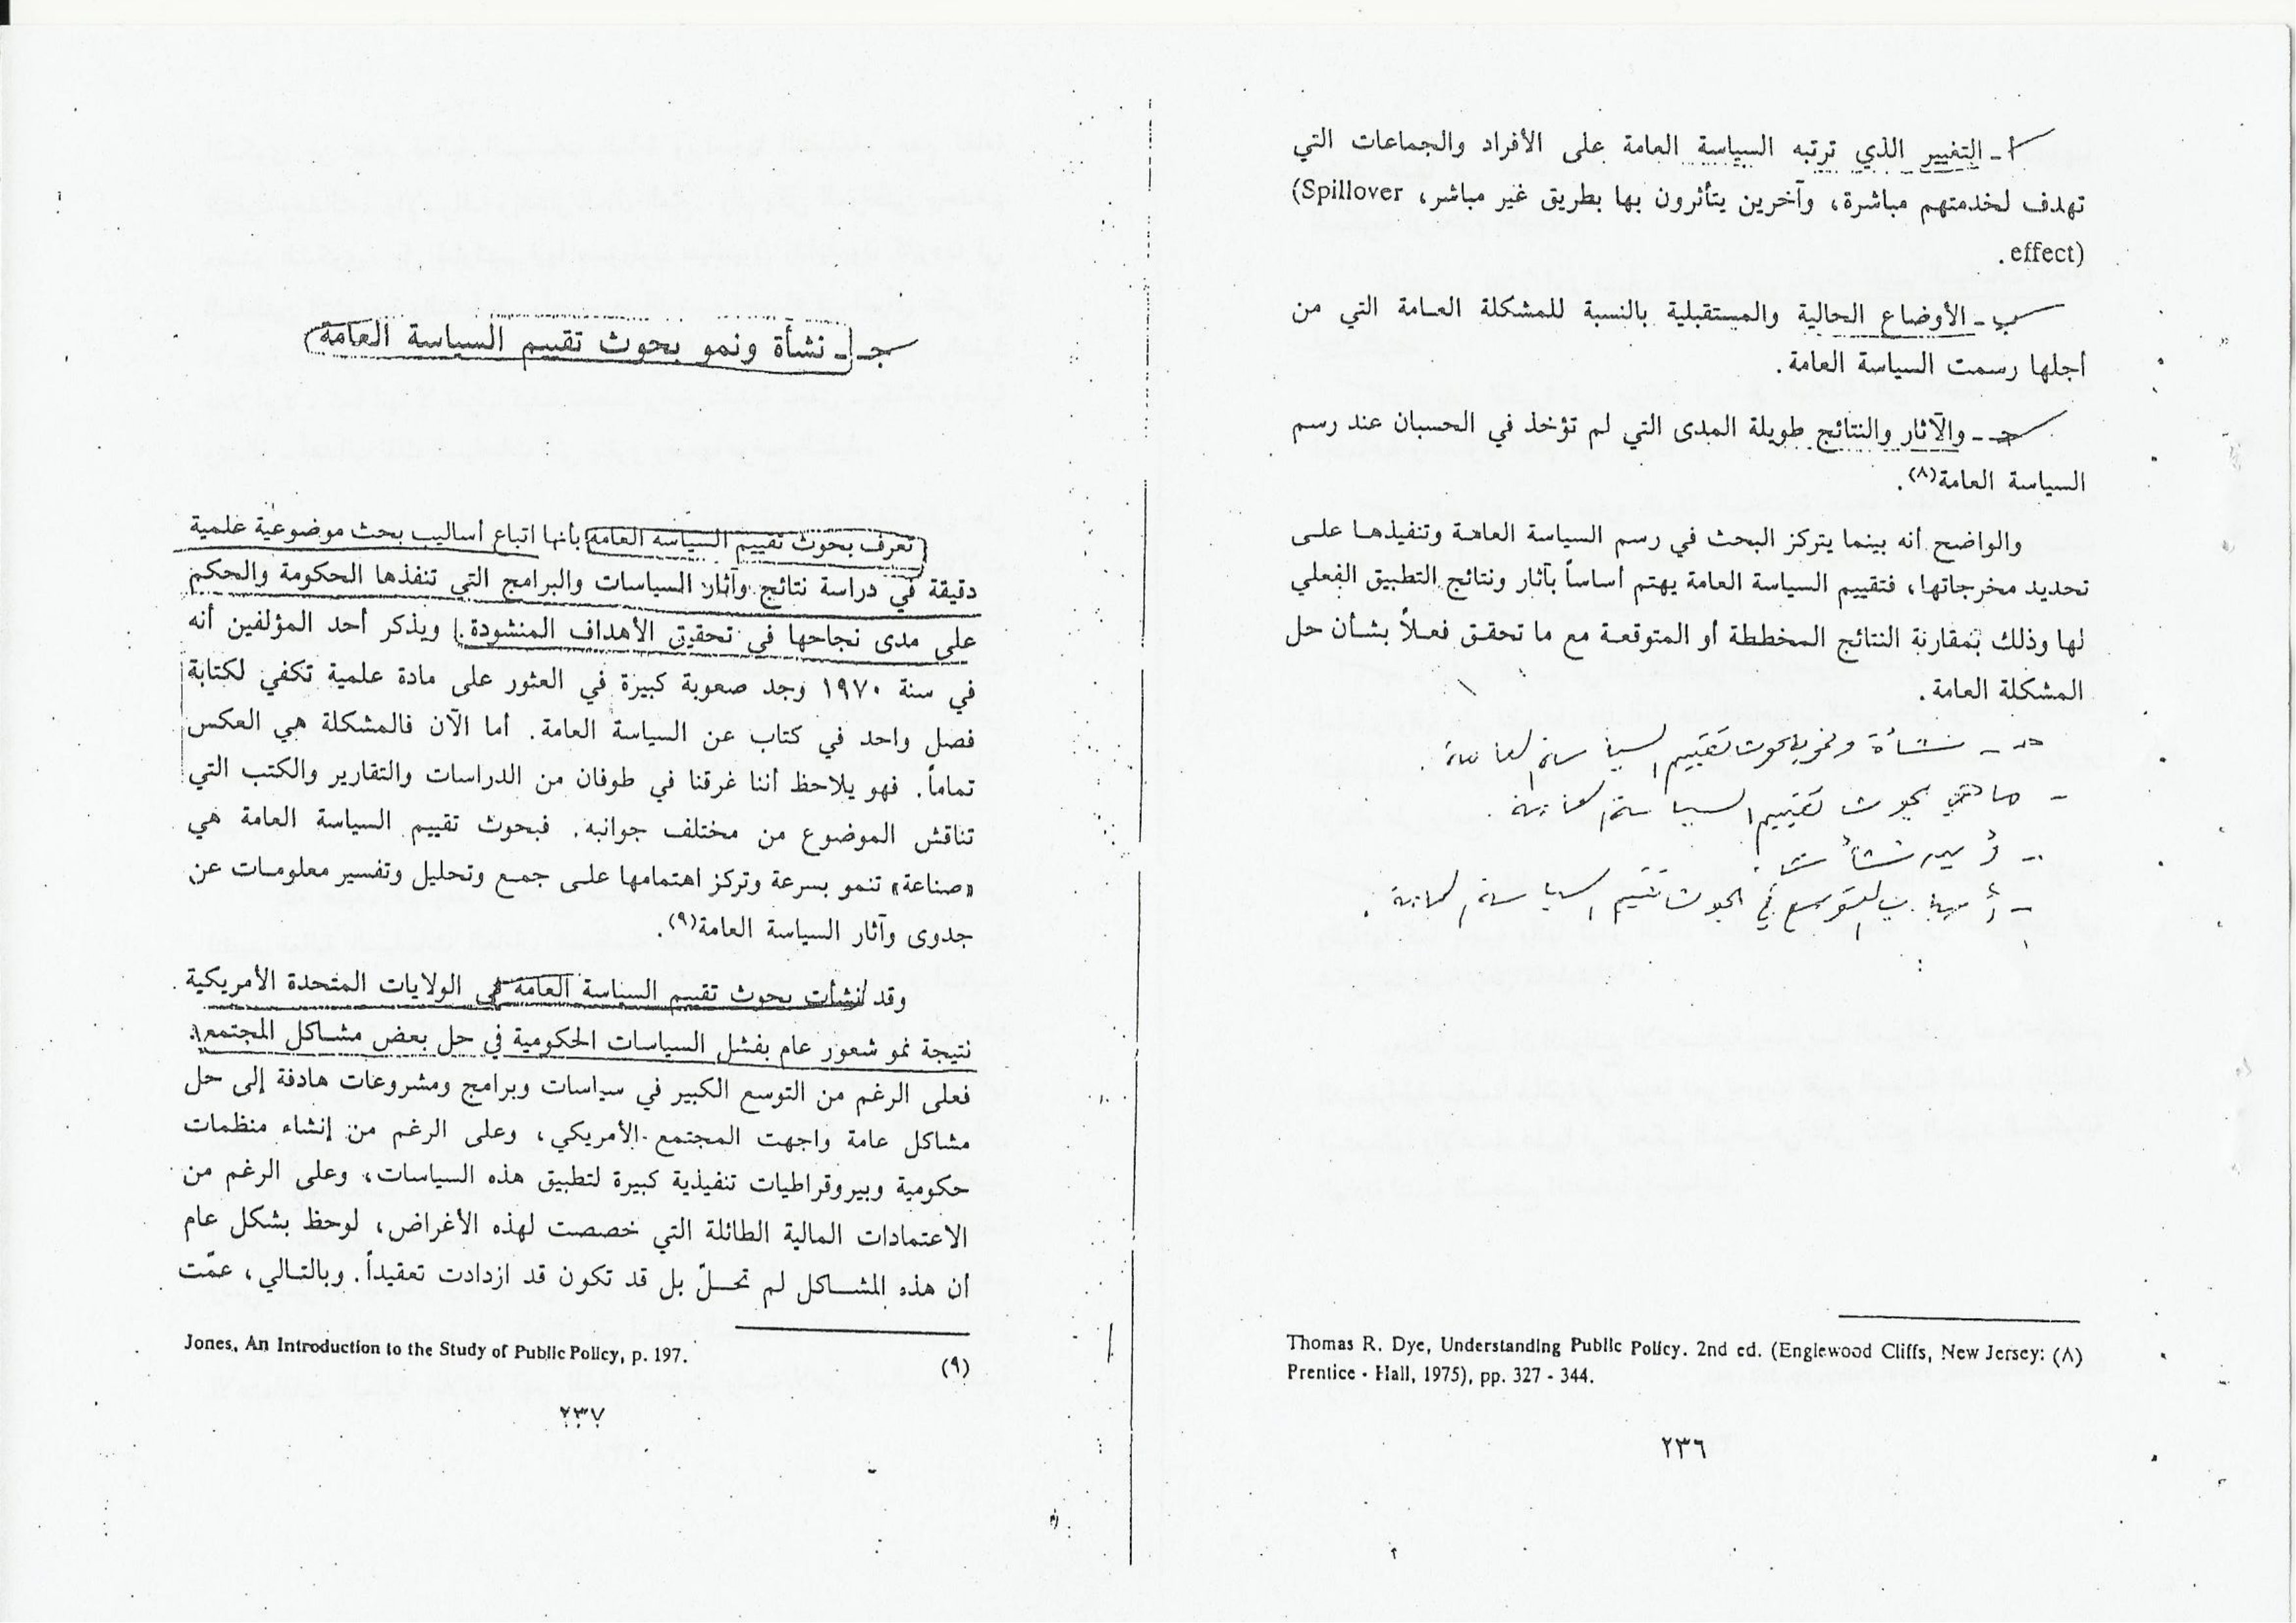 أ ـ التغيير الذي ترتبه السياسة العامة على الأفراد والجماعات التي
تهدف لخدمتهم مباشرة، وآخرين يتأثرون بها بطريق غير مباشر، (Spillover
effect) .
ب ـ الأوضاع الحالية والمستقبلية بالنسبة للمشكلة العامة التي من
أجلها رسمت السياسة العامة .
جـ ـ والآثار والنتائج طويلة المدى التي لم تؤخذ في الحسبان عند رسم
السياسة العامة(٨) .
والواضح أنه بينما يتركز البحث في رسم السياسة العامة وتنفيذها على
تحديد مخرجاتها، فتقييم السياسة العامة يهتم أساساً بآثار ونتائج التطبيق الفعلي
لها وذلك بمقارنة النتائج المخططة أو المتوقعة مع ما تحقق فعلاً بشأن حل
المشكلة العامة .
حـ ـ نشأة ونمو بحوث تقييم السياسة العامة .
ـ ما هي بحوث تقييم السياسة العامة .
ـ أين نشأت .
ـ أسباب التوسع في بحوث تقييم السياسة العامة .
(٨) Thomas R. Dye, Understanding Public Policy. 2nd ed. (Englewood Cliffs, New Jersey:
Prentice - Hall, 1975), pp. 327 - 344.
٢٣٦
جـ ـ نشأة ونمو بحوث تقييم السياسة العامة
تعرف بحوث تقييم السياسة العامة بأنها اتباع أساليب بحث موضوعية علمية
دقيقة في دراسة نتائج وآثار السياسات والبرامج التي تنفذها الحكومة والحكم
على مدى نجاحها في تحقيق الأهداف المنشودة . ويذكر أحد المؤلفين أنه
في سنة ١٩٧٠ وجد صعوبة كبيرة في العثور على مادة علمية تكفي لكتابة
فصل واحد في كتاب عن السياسة العامة . أما الآن فالمشكلة هي العكس
تماماً . فهو يلاحظ أننا غرقنا في طوفان من الدراسات والتقارير والكتب التي
تناقش الموضوع من مختلف جوانبه . فبحوث تقييم السياسة العامة هي
«صناعة» تنمو بسرعة وتركز اهتمامها على جمع وتحليل وتفسير معلومات عن
جدوى وآثار السياسة العامة(٩) .
وقد نشأت بحوث تقييم السياسة العامة في الولايات المتحدة الأمريكية
نتيجة نمو شعور عام بفشل السياسات الحكومية في حل بعض مشاكل المجتمع .
فعلى الرغم من التوسع الكبير في سياسات وبرامج ومشروعات هادفة إلى حل
مشاكل عامة واجهت المجتمع الأمريكي، وعلى الرغم من إنشاء منظمات
حكومية وبيروقراطيات تنفيذية كبيرة لتطبيق هذه السياسات، وعلى الرغم من
الاعتمادات المالية الطائلة التي خصصت لهذه الأغراض، لوحظ بشكل عام
أن هذه المشاكل لم تحلّ بل قد تكون قد ازدادت تعقيداً . وبالتالي، عمّت
(٩) Jones, An Introduction to the Study of Public Policy, p. 197.
٢٣٧